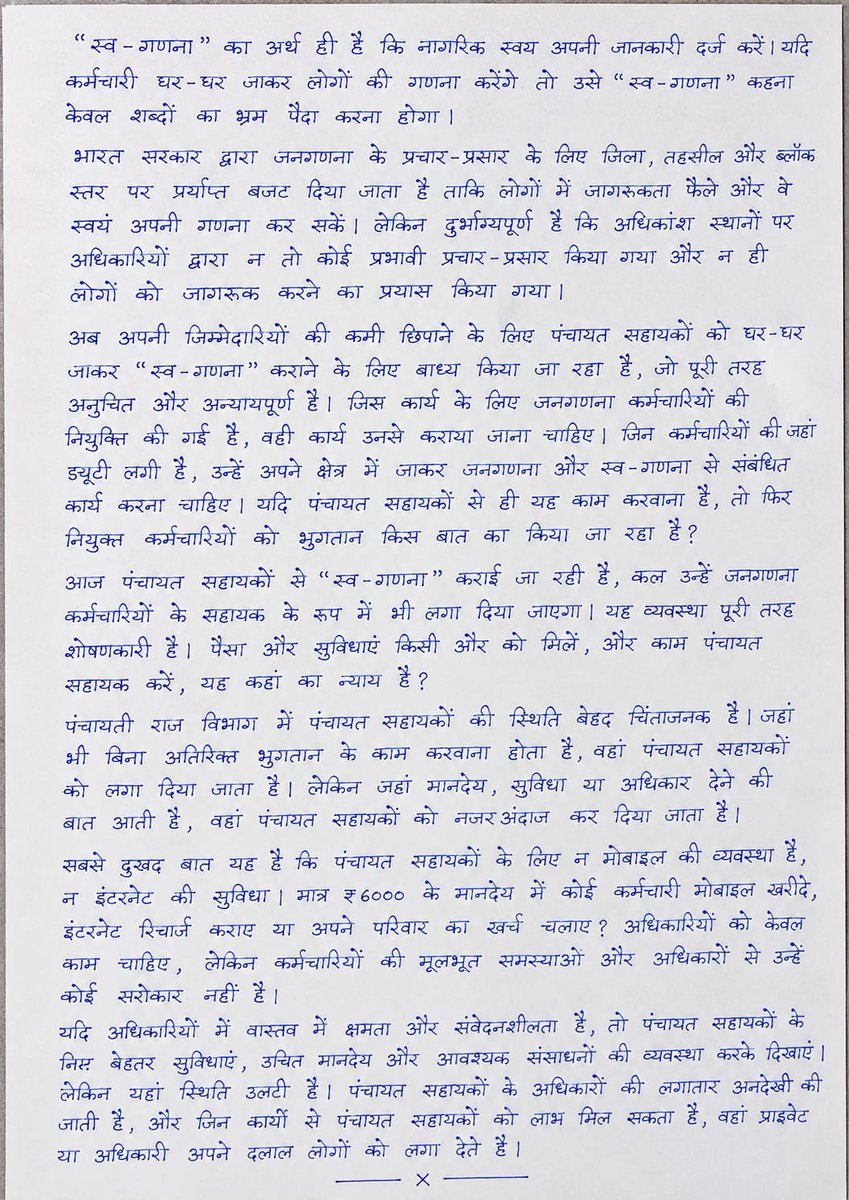 “स्व-गणना” का अर्थ ही है कि नागरिक स्वय अपनी जानकारी दर्ज करें। यदि
कर्मचारी घर-घर जाकर लोगों की गणना करेंगे तो उसे “स्व-गणना” कहना
केवल शब्दों का भ्रम पैदा करना होगा।
भारत सरकार द्वारा जनगणना के प्रचार-प्रसार के लिए जिला, तहसील और ब्लॉक
स्तर पर प्रर्याप्त बजट दिया जाता है ताकि लोगों में जागरूकता फैले और वे
स्वयं अपनी गणना कर सकें। लेकिन दुर्भाग्यपूर्ण है कि अधिकांश स्थानों पर
अधिकारियों द्वारा न तो कोई प्रभावी प्रचार-प्रसार किया गया और न ही
लोगों को जागरूक करने का प्रयास किया गया।
अब अपनी जिम्मेदारियों की कमी छिपाने के लिए पंचायत सहायकों को घर-घर
जाकर “स्व-गणना” कराने के लिए बाध्य किया जा रहा है, जो पूरी तरह
अनुचित और अन्यायपूर्ण है। जिस कार्य के लिए जनगणना कर्मचारियों की
नियुक्ति की गई है, वही कार्य उनसे कराया जाना चाहिए। जिन कर्मचारियों की जहां
ड्यूटी लगी है, उन्हें अपने क्षेत्र में जाकर जनगणना और स्व-गणना से संबंधित
कार्य करना चाहिए। यदि पंचायत सहायकों से ही यह काम करवाना है, तो फिर
नियुक्त कर्मचारियों को भुगतान किस बात का किया जा रहा है?
आज पंचायत सहायकों से “स्व-गणना” कराई जा रही है, कल उन्हें जनगणना
कर्मचारियों के सहायक के रूप में भी लगा दिया जाएगा। यह व्यवस्था पूरी तरह
शोषणकारी है। पैसा और सुविधाएं किसी और को मिलें, और काम पंचायत
सहायक करें, यह कहां का न्याय है?
पंचायती राज विभाग में पंचायत सहायकों की स्थिति बेहद चिंताजनक है। जहां
भी बिना अतिरिक्त भुगतान के काम करवाना होता है, वहां पंचायत सहायकों
को लगा दिया जाता है। लेकिन जहां मानदेय, सुविधा या अधिकार देने की
बात आती है, वहां पंचायत सहायकों को नजर अंदाज कर दिया जाता है।
सबसे दुखद बात यह है कि पंचायत सहायकों के लिए न मोबाइल की व्यवस्था है,
न इंटरनेट की सुविधा। मात्र ₹6000 के मानदेय में कोई कर्मचारी मोबाइल खरीदे,
इंटरनेट रिचार्ज कराए या अपने परिवार का खर्च चलाए? अधिकारियों को केवल
काम चाहिए, लेकिन कर्मचारियों की मूलभूत समस्याओं और अधिकारों से उन्हें
कोई सरोकार नहीं है।
यदि अधिकारियों में वास्तव में क्षमता और संवेदनशीलता है, तो पंचायत सहायकों के
लिए बेहतर सुविधाएं, उचित मानदेय और आवश्यक संसाधनों की व्यवस्था करके दिखाएं।
लेकिन यहां स्थिति उलटी है। पंचायत सहायकों के अधिकारों की लगातार अनदेखी की
जाती है, और जिन कार्यों से पंचायत सहायकों को लाभ मिल सकता है, वहां प्राइवेट
या अधिकारी अपने दलाल लोगों को लगा देते है।
— x —